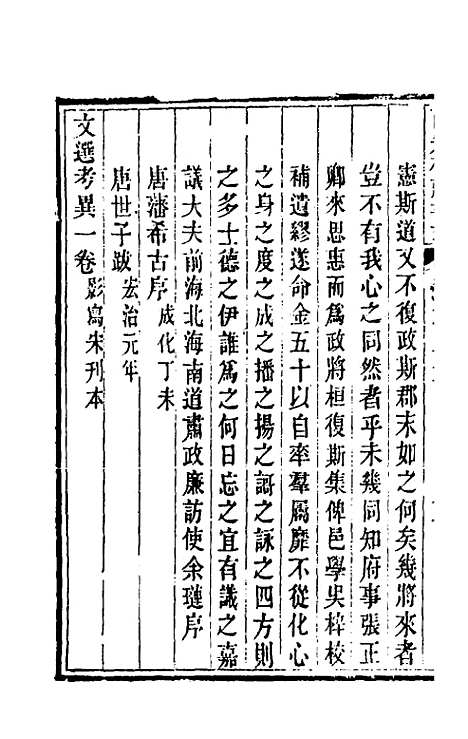 憲斯道又不復政斯郡末如之何矣幾將來者
豈不有我心之同然者乎未幾同知府事張正
卿來思惠而爲政將桓復斯集俾邑學吳梓校
補遺繆遂命金五十以自率羣屬靡不從化心
之身之度之成之播之揚之謌之詠之四方則
之多士德之伊誰爲之何日忘之宜有識之嘉
議大夫前海北海南道肅政廉訪使余璉序
唐藩希古序成化丁未
唐世子跋宏治元年
文選考異一卷影寫宋刊本